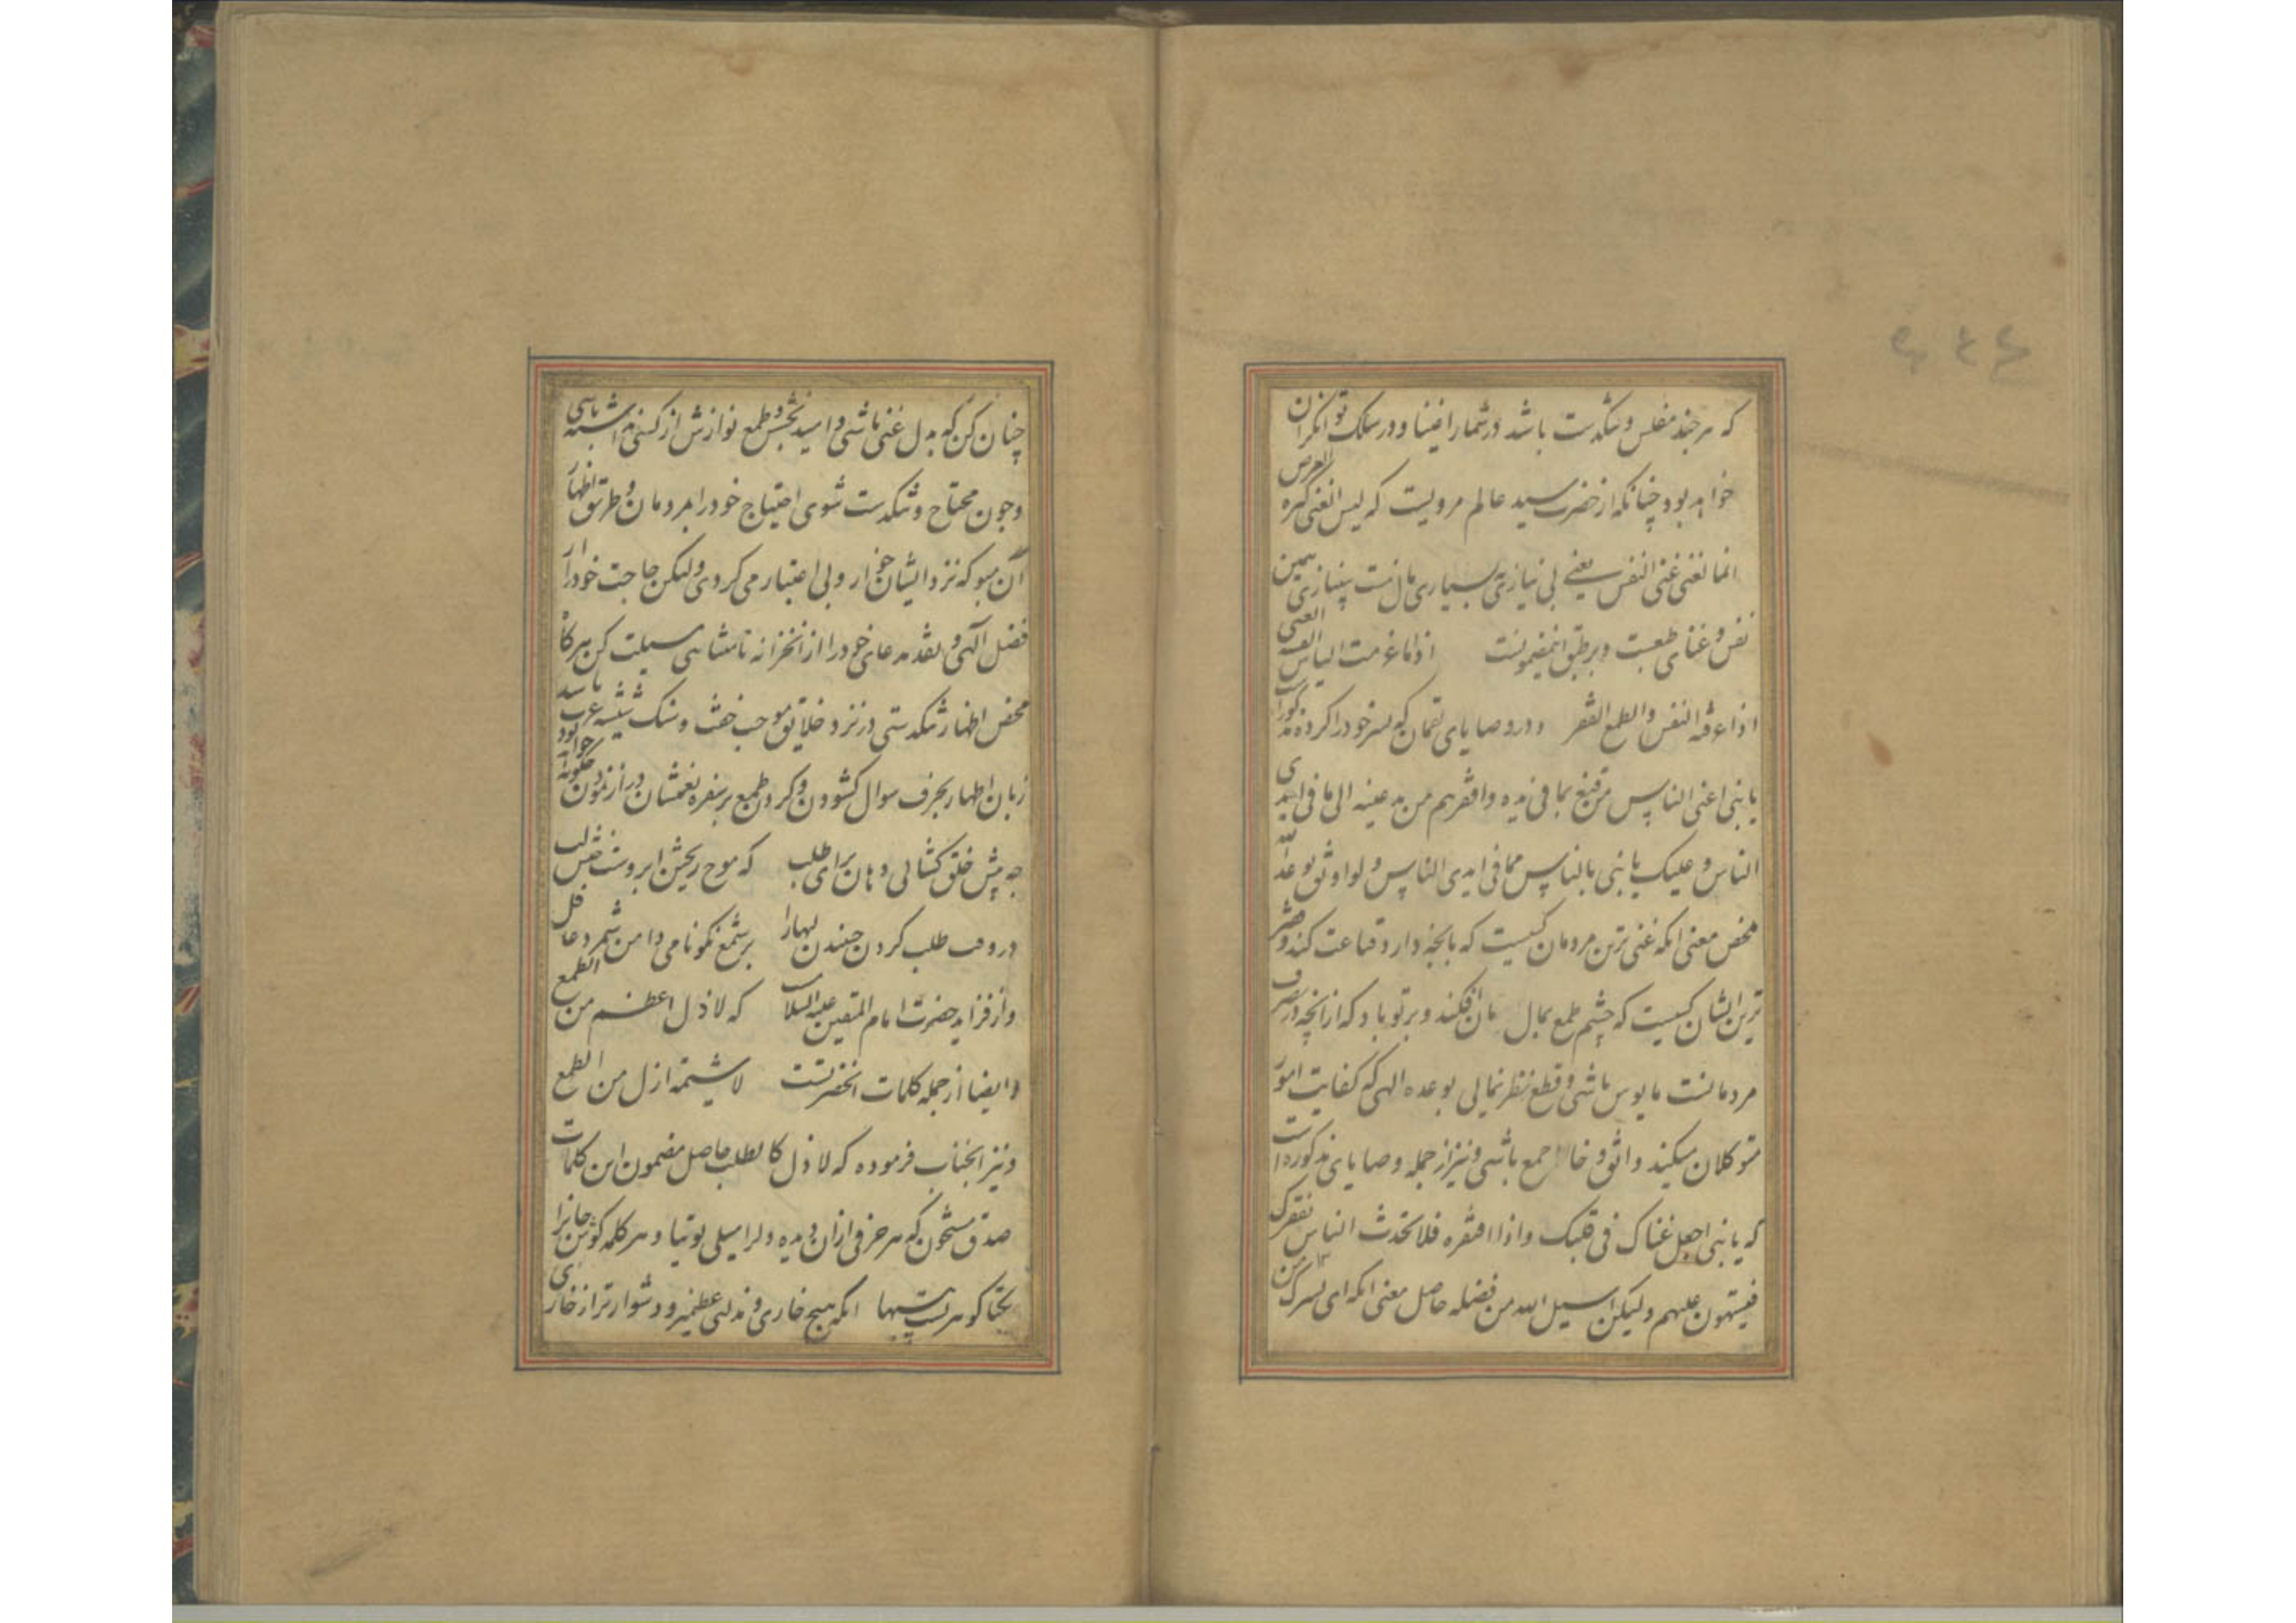 که هر چند مفلس و تنکدست باشد در شمار اغنیا و در سلک توانکران
خواهد بود چنانکه از حضرت سید عالم مرویست که لیس الغنی کثره العرض
انما الغنی غنی النفس یعنی بی نیازی بسیاری مال نیست بی نیازی همین
نفس و غنای طبعست و بر طبق اینمضمونست
النفس والطمع الفقر و در وصایای لقمان که پسر خود را کرده مذکور است
یا بنی اغنی الناس من قنع بما فی یده و افقرهم من مد عینیه الی ما فی ایدی
الناس و علیک یا بنی بالیاس مما فی ایدی الناس و الوثوق بوعد الله
محض معنی انکه غنی ترین مردمان کسیست که بانچه دارد قناعت کند و فقیر
ترین ایشان کسیست که چشم طمع بمال افکند و بر تو باد که از انچه در تصرف
مردمانست مایوس باشی و قطع نظر نمائی بوعده الهی که کفایت امور
متوکلان میکند واثق و خاطر جمع باشی و نیز از جمله وصایای مذکوره است
که یا بنی اجعل غناک فی قلبک و اذا افتقرت فلا تحدث الناس بفقرک
فتهون علیهم ولیکن اسیل الله من فضله حاصل معنی انکه ای پسرک من
چنان کن که بدل غنی باشی و امید بخشش و طمع نوازش از کسی نداشته باشی
و چون محتاج و تنکدست شوی احتیاج خود را بمردمان و طریق اظهار
آن مپو که نزد ایشان خوار و بی اعتبار می کردی ولیکن حاجت خود را از
فضل آلهی و نقد مدعای خود را از انخزانه نامتناهی مسیلت کن هرکاه
محض اظهار تنکدستی در نزد خلایق موجب خفت و سنک شیشه عزت باشد
زبان اظهار بحرف سوال کشودن و کردن طمع بر سفره نعمتشان دراز نمودن چکونه خواهد بود
چه پیش خلق کشائی دهان برای طلب که موج ریزش ابروست جنبش لب
در وقت طلب کردن جنبیدن لبها را بر شمع نکونامی دامن شمرد عاقل
و از فرزاید حضرت امام المتقین علیه السلام که لا ذل اعظم من الطمع
و ایضا از جمله کلمات انحضرتست لا شیمة اذل من الطمع
و نیز انجناب فرموده که لا ذل کالطلب حاصل مضمون این کلمات
صدق مشحون که هر حرفی ازان دیده دل را میلی توتیا و هر کلمه کوش جانرا
یکتا کوهریست پر بها انکه هیچ خاری و مذلتی عظیم تر و دشوارتر از خاری